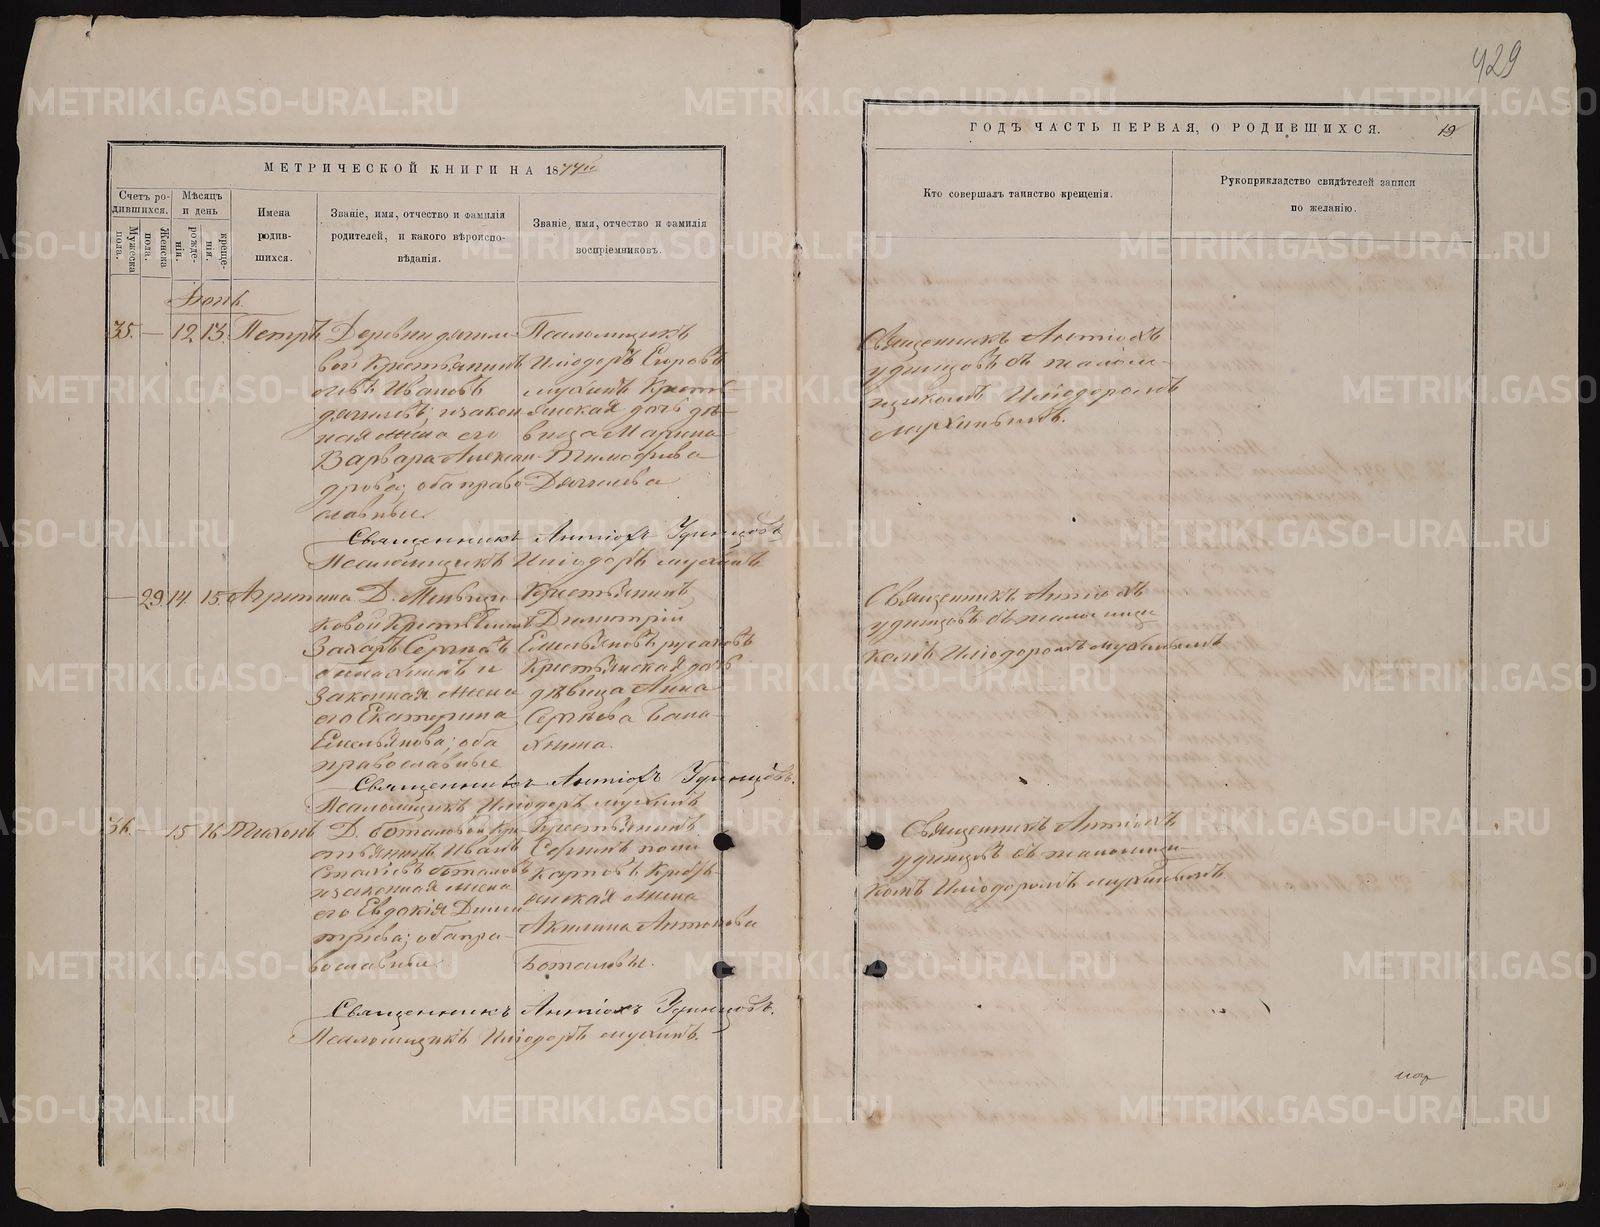 429
МЕТРИЧЕСКОЙ КНИГИ НА 1877й
ГОДЪ ЧАСТЬ ПЕРВАЯ, О РОДИВШИХСЯ.
19
Счетъ ро-
дившихся.
Мужеска пола.
Женска пола.
Мѣсяцъ
и день
рожде-
нія.
креще-
нія.
Имена
родив-
шихся.
Званіе, имя, отчество и фамилія
родителей, и какого вѣроиспо-
вѣданія.
Званіе, имя, отчество и фамилія
воспріемниковъ.
Кто совершалъ таинство крещенія.
Рукоприкладство свидѣтелей записи
по желанію.
Іюнь
35. — 12. 13. Петръ
Деревни
вой Крестьянинъ
Ивановъ
и закон-
ная жена его
Варвара Алексан-
дрова; оба право-
славные.
Псаломщикъ
Иліодоръ Егоровъ
Мухинъ Кресть-
янская дочь дѣ-
вица Марина
Тимофеева
Священникъ Антіохъ
Удинцовъ съ псалом-
щикомъ Иліодоромъ
Мухинымъ.
Священникъ Антіохъ Удинцовъ
Псаломщикъ Иліодоръ Мухинъ
— 29. 14. 15. Агрипина
Д.
ковой Крестьянинъ
Захаръ Сергѣевъ
и
Законная жена
его Екатерина
Емельянова; оба
православные
Крестьянинъ
Димитрій
Емельяновъ Русаковъ
Крестьянская дочь
дѣвица Анна
Сергѣева
Священникъ Антіохъ
Удинцовъ съ псаломщи-
комъ Иліодоромъ Мухинымъ
Священникъ Антіохъ Удинцовъ.
Псаломщикъ Иліодоръ Мухинъ
36. — 15. 16. Тихонъ
Д. Боталовой Кре-
стьянинъ Иванъ
Боталовъ
и законная жена
его Евдокія Дими-
тріева; оба пра-
вославные.
Крестьянинъ
Кресть-
янская жена
Акилина Антонова
Боталовы.
Священникъ Антіохъ
Удинцовъ съ псаломщи-
комъ Иліодоромъ Мухинымъ
Священникъ Антіохъ Удинцовъ.
Псаломщикъ Иліодоръ Мухинъ.
METRIKI.GASO-URAL.RU